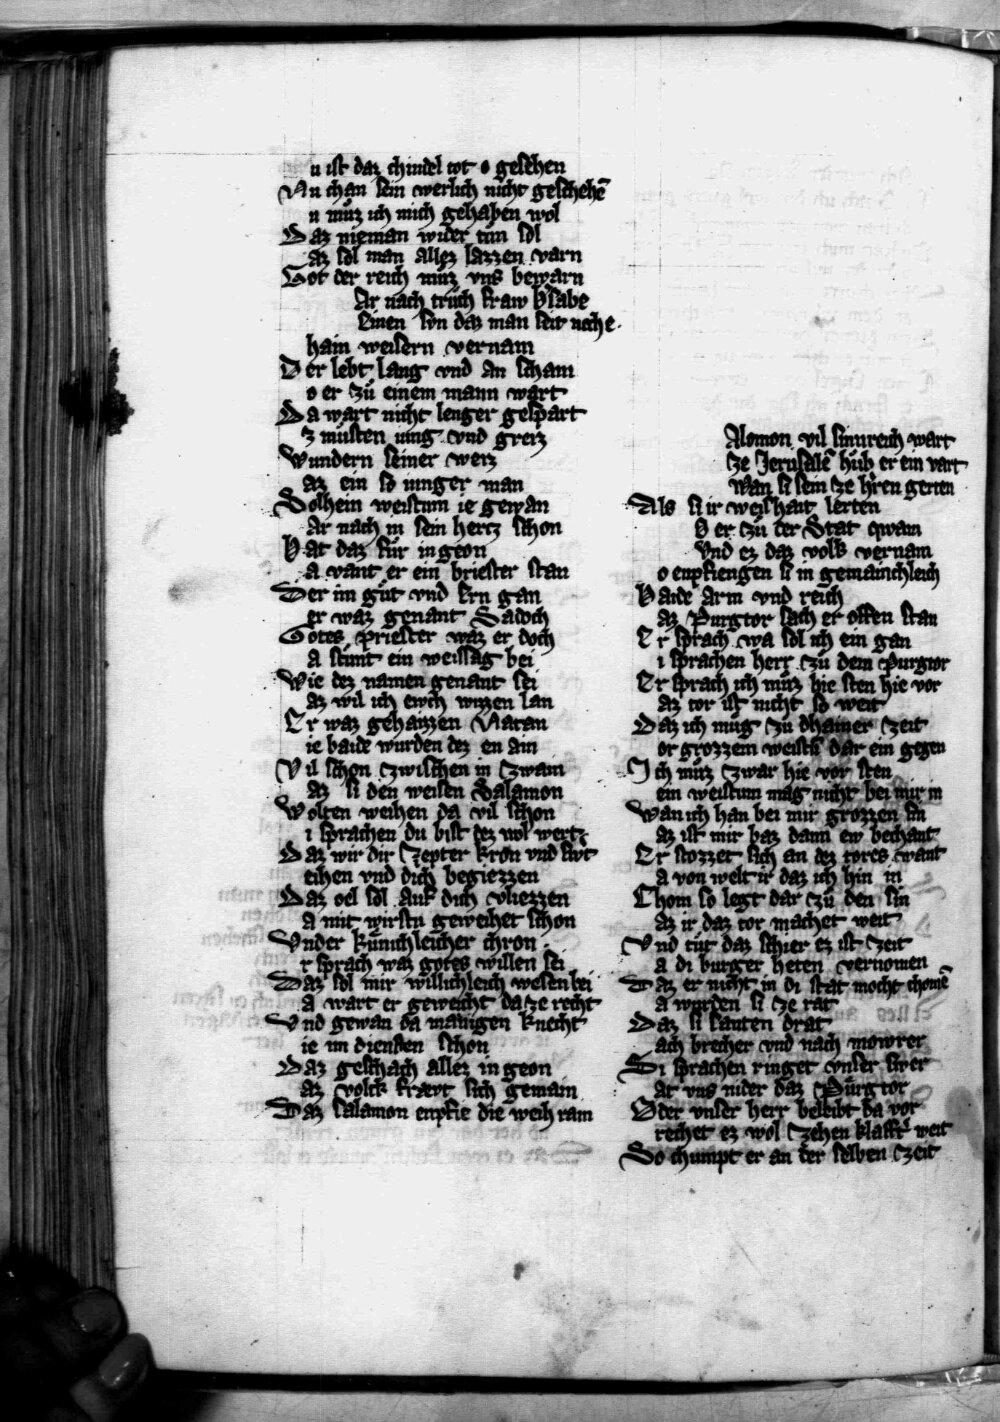 u ist daz chindel tot o gesehen
Nu chan sein werlich nicht geschehē
u můz ich mich gehaben wol
Daz nieman wider tůn sol
az sol man allez lazzen varn
Got der reich můz vns bewarn
Ar nach trůch fraw bsabe
Einen sůn daz man seit veche
hain weisern vernam
Der lebt lang vnd an scham
o er zů einem mann wart
Da wart nicht lenger gespart
z můsten iung vnd greiz
Wundern seiner werz
az ein so iunger man
Solhein weistum ie gewan
Ar nach in sein hertz schon
Hat daz fůr in geon
a vant er ein briester stan
Der im gůt vnd ern gan
er waz genant Sadoch
Gotes priester waz er doch
a stůnt ein weissag bei
Wie dez namen genant sei
az wil ich ewch wizzen lan
Er waz gehaizzen Natan
ie baide wurden dez en ain
Vil schon zwischen in zwain
az si den weisen Salamon
Wolten weihen da vil schon
i sprachen du bist dez wol wert
Daz wir dir zepter kron vnd swt
eihen vnd dich begiezzen
Daz oel sol auf dich vliezzen
a mit wirstu geweihet schon
Vnder kůnichleicher chron
r sprach waz gotes willen sei
Daz sol mir willichleich wesen bei
a wart er geweicht da ze recht
Vnd gewan da manigen knecht
ie im diensten schon
Daz geschach allez in geon
az volck frævt sich gemain
Daz salamon enpfie die weih rain
Alomon vil sinnreich wart
ze Jerusalē hůb er ein vart
Wan si sein ze hren gerten
Als si ir weishait lerten
o er zů der Stat qwam
Vnd ez daz volk vernam
o enpfiengen si in gemainchleich
Baide arm vnd reich
az Purgtor sach er offen stan
Er sprach wa sol ich ein gan
i sprachen herr zů dem Purgtor
Er sprach ich můz hie sten hie vor
az tor ist nicht so weit
Daz ich můg zů dhainer zeit
or grozzem weistů dar ein gegen
Ich můz zwar hie vor sten
ein weistum mag nicht bei mir in
Wan ich han bei mir grozzen sin
az ist mir baz dann ew bechant
Er stozzet sich an dez tores want
a von welt ir daz ich hin in
Chom so legt dar zů den sin
az ir daz tor machet weit
Vnd tůt daz schier ez ist zeit
a di burger heten vernomen
Daz er nicht in di stat mocht chomē
a wurden si ze rat
Daz si santen drat
ach brecher vnd nach mowrer
Si sprachen ringet vnser swer
at vns nider daz Půrgtor
Oder vnser herr beleibt da vor
rechet ez wol zehen klafft weit
So chumpt er an der selben zeit